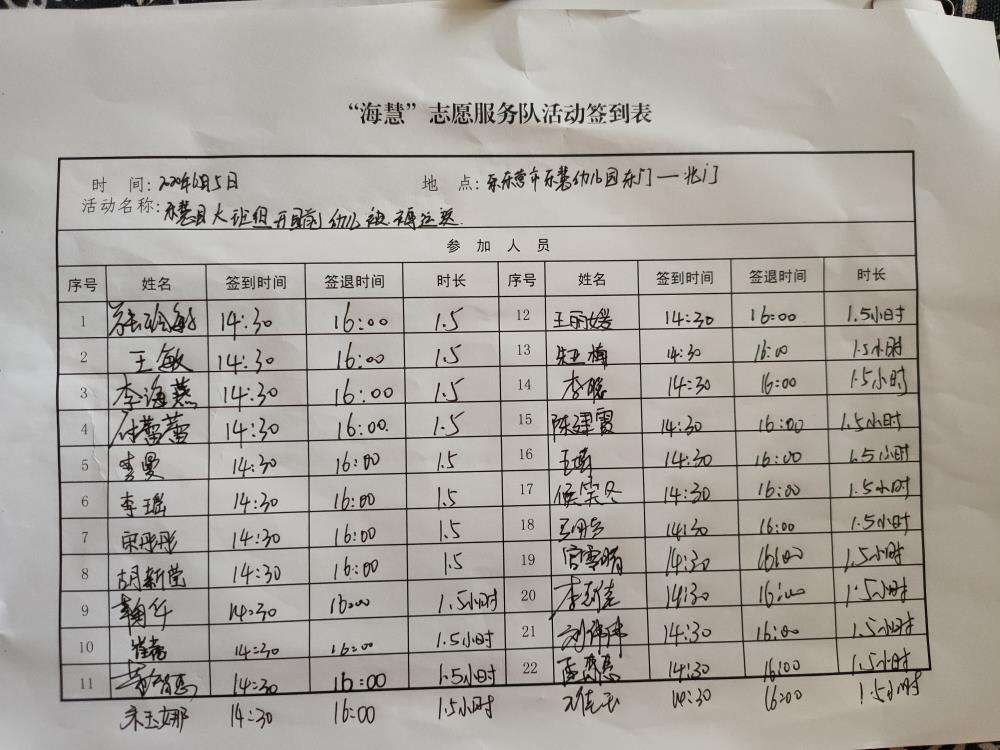 “海慧”志愿服务队活动签到表
时 间: 2020年6月5日 地 点: 东营市东慧幼儿园东门一北门
活动名称: 大班组 幼儿被褥
参加人员
序号 姓名 签到时间 签退时间 时长 序号 姓名 签到时间 签退时间 时长
1 14:30 16:00 1.5 12 王丽媛 14:30 16:00 1.5小时
2 王敏 14:30 16:00 1.5 13 朱亚梅 14:30 16:00 1.5小时
3 李海燕 14:30 16:00 1.5 14 李聪 14:30 16:00 1.5小时
4 蕾蕾 14:30 16:00 1.5 15 陈建霞 14:30 16:00 1.5小时
5 李曼 14:30 16:00 1.5 16 14:30 16:00 1.5小时
6 李瑶 14:30 16:00 1.5 17 侯笑冬 14:30 16:00 1.5小时
7 宋彤彤 14:30 16:00 1.5 18 14:30 16:00 1.5小时
8 胡新莹 14:30 16:00 1.5 19 宫雪晴 14:30 16:00 1.5小时
9 14:30 16:00 1.5小时 20 14:30 16:00 1.5小时
10 14:30 16:00 1.5小时 21 刘伟伟 14:30 16:00 1.5小时
11 14:30 16:00 1.5小时 22 14:30 16:00 1.5小时
宋玉娜 14:30 16:00 1.5小时 14:30 16:00 1.5小时